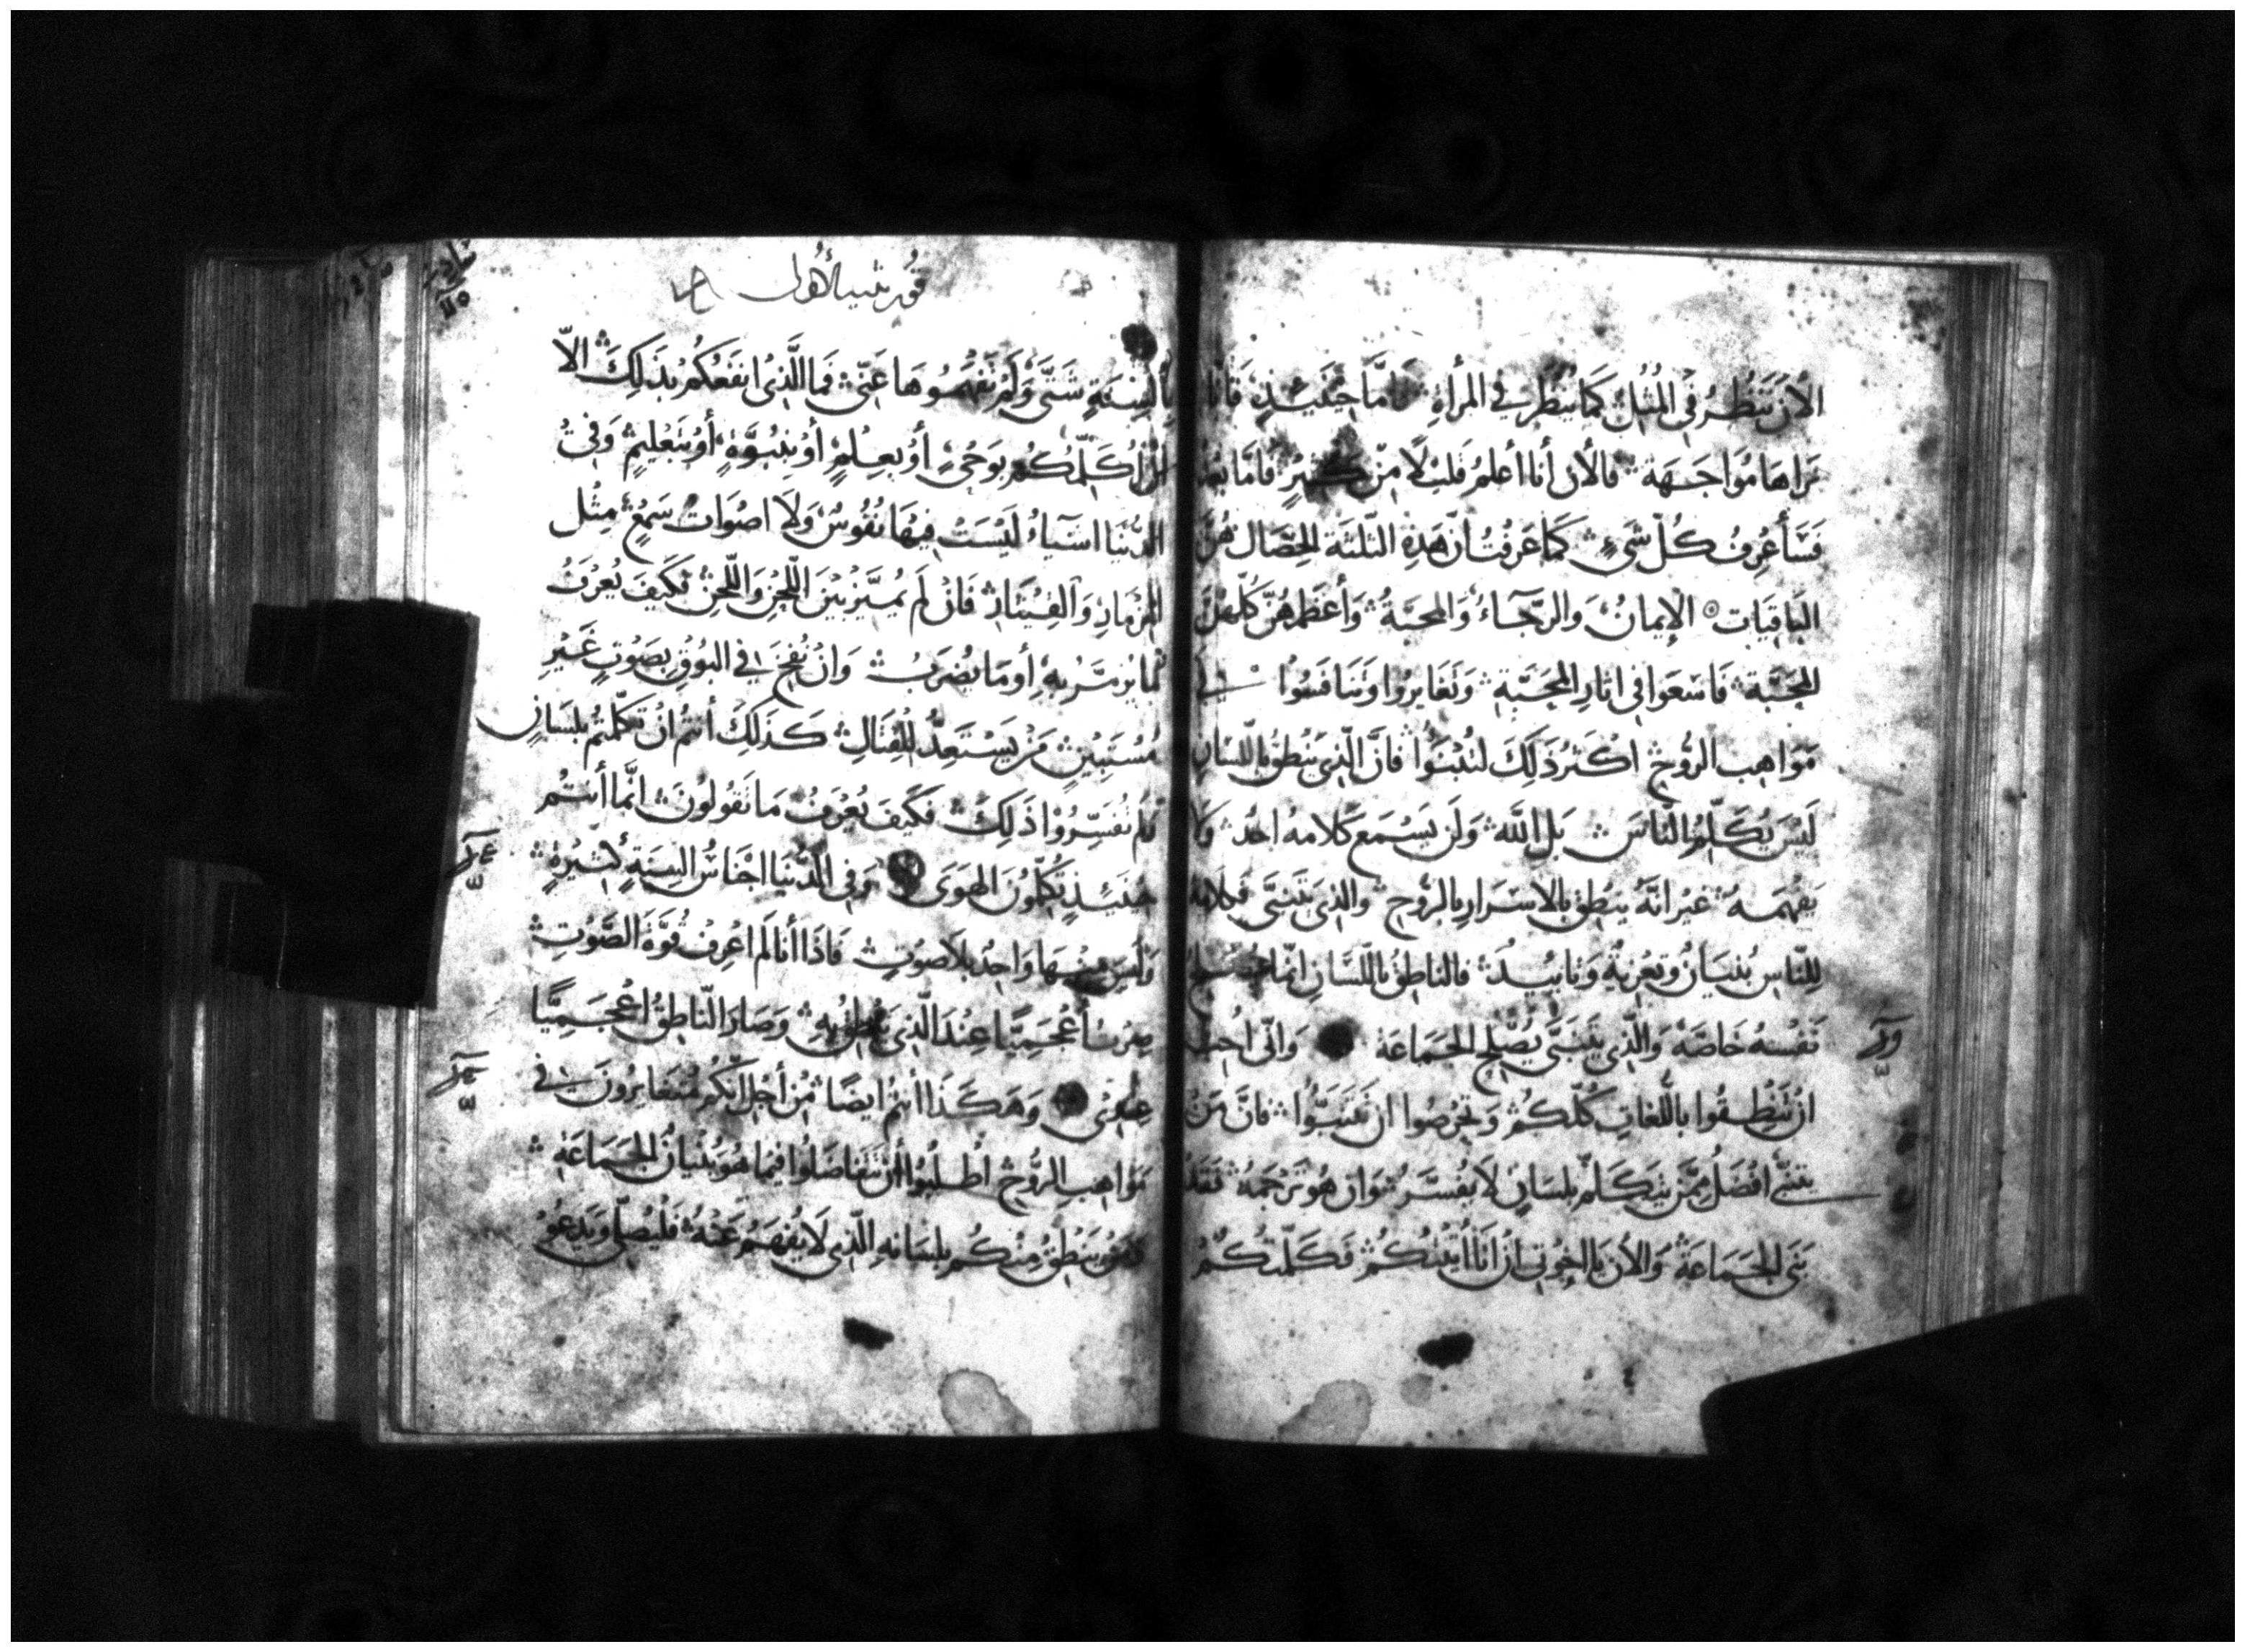 الآنَ نَنظُرُ في المُثُلِ كَما يُنظَرُ في المرأةِ فَامَّا حِينَئِذٍ فَأنَّا
نَراهَا مُوَاجَهَةً فالأن أنا أعلمُ قليلًا مِنْ كَثيرٍ فأمَّا بَعْدُ
فَسَأَعْرِفُ كُلّ شَىءٍ كَما عَرفْتُ أنّ هَذِهِ الثّلثَة الخِصَال هُنَّ
البَاقيَات الإيمانُ وَالرّجَآءُ وَالمحبّةُ وَأعْظمهُنَّ كلّهنَّ
المحَبَّة فَاسْعَوا في اثارِ المحَبّةِ وَتَغَايرُوا وَتَنَافَسُوا في
مَوَاهِبِ الرُّوحِ اكْثرُ ذَلِكَ لتُنْبَئوُا فانَّ الّذِى يَنْطِقُ باللّسَانِ
لَيْسَ يُكَلِّمُ النّاسَ بَل اللّهَ وَلَن يَسْمَع كَلامهُ احَدٌ وَلا
يَفْهَمهُ غيْر انّهُ يَنطِق بالاسْرَارِ بالرّوُحِ والذِى يَتَنبَّى فَكلامهُ
لِلنّاسِ بُنيَانٌ وتعْزيةٌ وَتاييدٌ فالناطِقُ باللّسَانِ انّما يُصْلحُ
نَفْسهُ خَاصّةً وَالّذِى يتَنَبَّى يُصْلح الجَمَاعَة وَانّى اُحِبُّ
انْ تَنْطِقُوا باللّغاتِ كُلّكُمْ وَتحْرِصُوا ان تَتَنَبّوُا فانَّ مَنْ
يتنبّى افْضَلُ ممّنْ يتَكَلّم بلسَانٍ لَا يفُسَّرُ وَان هُو تَرْجَمَهُ فَقَدْ
بَنَى الجَمَاعَةَ وَالأن يَا اخْوتي انْ انَا أتيْتُكُمْ فَكَلّمْتُكُمْ
قورنثيه الأولى
بألْسِنَةٍ شَتَّى وَلَمْ تَفْهَمُوهَا عَنّى فَما الَّذِى انفَعُكُمْ بِذَلِكَ الّا
انْ اُكَلّمُكُم بِوَحْىٍ أو بعِلْمٍ أو بنُبُوّةٍ أو بتَعْليمٍ وَفي
الدُّنيَا اشيَاءُ لَيْسَتْ فيهَا نُفُوسٌ وَلَا اصْوَاتُ سَمْعٍ مِثْل
المِزْمَارِ وَالقيثارِ فَانْ لَم يُميَّزْ بَيْن اللّحْنِ وَاللّحْنِ فكَيفَ يُعْرَفُ
مَا يُزمَّرُ بِهِ أو مَا يُضرَبُ وَانْ نُفِخَ في البُوقِ بصَوْتٍ غَيْرِ
مُسْتَبينٍ مَنْ يَسْتَعِدُّ للْقِتَالِ كَذلِكَ أنتُم انْ تكَلّمتُم بلسَانٍ
لَم تُفسِّرُوْا ذَلِكَ فكَيفَ يُعْرَفُ مَا تَقُولونَ انَّما أنتُم
حِينَئِذٍ تُكلّمونَ الهَوَى وَفى الدُّنيَا اجْناسُ السِنَةٍ كَثيرةٍ
وَلَيسَ مِنهَا وَاحِدٌ بلَا صَوْتٍ فَاذَا أنا لَم اعْرِفْ قُوّةَ الصَّوْتِ
صِرْتُ أعْجَميًّا عِنْدَ الّذِى يَنْطِقُ بِهِ وَصَارَ النّاطِقُ اعْجَمِيًّا
عِنْدِى وَهَكَذَا أنتُم ايضًا مِنْ أجْل انّكم مُتَغَايرُونَ في
مَوَاهِبِ الرُّوحِ اُطْلبُوا أنْ تَتَفاضَلُوا فيما هُو بُنْيان الجَمَاعَةِ
يَنْطِقُ مِنْكُم بلسَانهِ الّذِى لَا يُفْهَمُ عَنْهُ فَليُصَلِّ وَيَدعُوْ